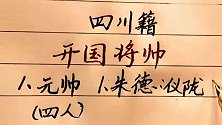 四川籍
开国将帅
1.元帅 1.朱德:仪陇
(四人)